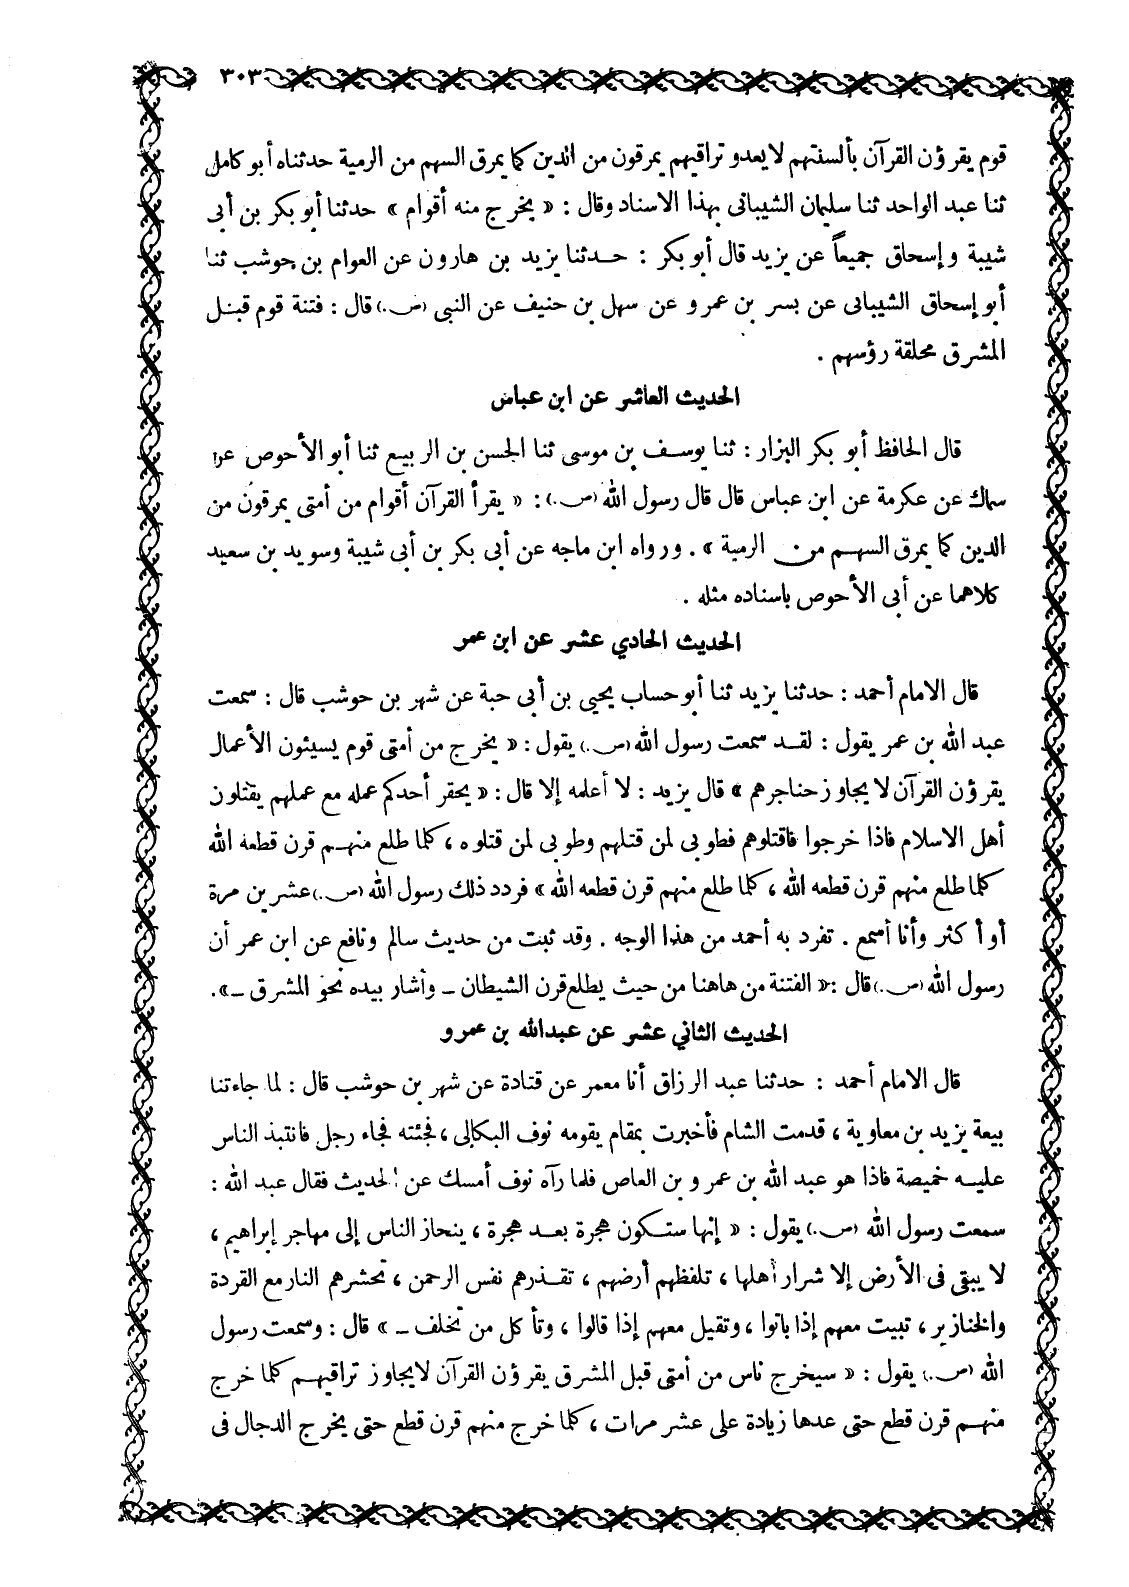 ٣٠٣
قوم يقرؤن القرآن بألسنتهم لا يعدو تراقيهم يمرقون من الدين كما يمرق السهم من الرمية حدثناه أبو كامل
ثنا عبد الواحد ثنا سليمان الشيبانى بهذا الاسناد وقال : « يخرج منه أقوام » حدثنا أبو بكر بن أبى
شيبة وإسحاق جميعاً عن يزيد قال أبو بكر : حدثنا يزيد بن هارون عن العوام بن حوشب ثنا
أبو إسحاق الشيبانى عن بسر بن عمرو عن سهل بن حنيف عن النبى (ص.) قال : فتنة قوم قبل
المشرق محلقة رؤسهم .
الحديث العاشر عن ابن عباس
قال الحافظ أبو بكر البزار : ثنا يوسف بن موسى ثنا الحسن بن الربيع ثنا أبو الأحوص عن
سماك عن عكرمة عن ابن عباس قال قال رسول الله (ص.) : « يقرأ القرآن أقوام من أمتى يمرقون من
الدين كما يمرق السهم من الرمية » . ورواه ابن ماجه عن أبى بكر بن أبى شيبة وسويد بن سعيد
كلاهما عن أبى الأحوص باسناده مثله .
الحديث الحادي عشر عن ابن عمر
قال الامام أحمد : حدثنا يزيد ثنا أبو حساب يحيى بن أبى حبة عن شهر بن حوشب قال : سمعت
عبد الله بن عمر يقول : لقد سمعت رسول الله (ص.) يقول : « يخرج من أمتى قوم يسيئون الأعمال
يقرؤن القرآن لا يجاوز حناجرهم » قال يزيد : لا أعلمه إلا قال : « يحقر أحدكم عمله مع عملهم يقتلون
أهل الاسلام فاذا خرجوا فاقتلوهم فطوبى لمن قتلهم وطوبى لمن قتلوه ، كلما طلع منهم قرن قطعه الله
كلما طلع منهم قرن قطعه الله ، كلما طلع منهم قرن قطعه الله » فردد ذلك رسول الله (ص.) عشرين مرة
أو أكثر وأنا أسمع . تفرد به أحمد من هذا الوجه . وقد ثبت من حديث سالم ونافع عن ابن عمر أن
رسول الله (ص.) قال : « الفتنة من هاهنا من حيث يطلع قرن الشيطان ــ وأشار بيده نحو المشرق ــ » .
الحديث الثاني عشر عن عبدالله بن عمرو
قال الامام أحمد : حدثنا عبد الرزاق أنا معمر عن قتادة عن شهر بن حوشب قال : لما جاءتنا
بيعة يزيد بن معاوية ، قدمت الشام فأخبرت بمقام يقومه نوف البكالى ، فجئته فجاء رجل فانتبذ الناس
عليه خميصة فاذا هو عبد الله بن عمرو بن العاص فلما رآه نوف أمسك عن الحديث فقال عبد الله :
سمعت رسول الله (ص.) يقول : « إنها ستكون هجرة بعد هجرة ، ينحاز الناس إلى مهاجر إبراهيم ،
لا يبقى فى الأرض إلا شرار أهلها ، تلفظهم أرضهم ، تقذرهم نفس الرحمن ، تحشرهم النار مع القردة
والخنازير ، تبيت معهم إذا باتوا ، وتقيل معهم إذا قالوا ، وتأكل من تخلف ــ » قال : وسمعت رسول
الله (ص.) يقول : « سيخرج ناس من أمتى قبل المشرق يقرؤن القرآن لا يجاوز تراقيهم كلما خرج
منهم قرن قطع حتى عدها زيادة على عشر مرات ، كلما خرج منهم قرن قطع حتى يخرج الدجال فى